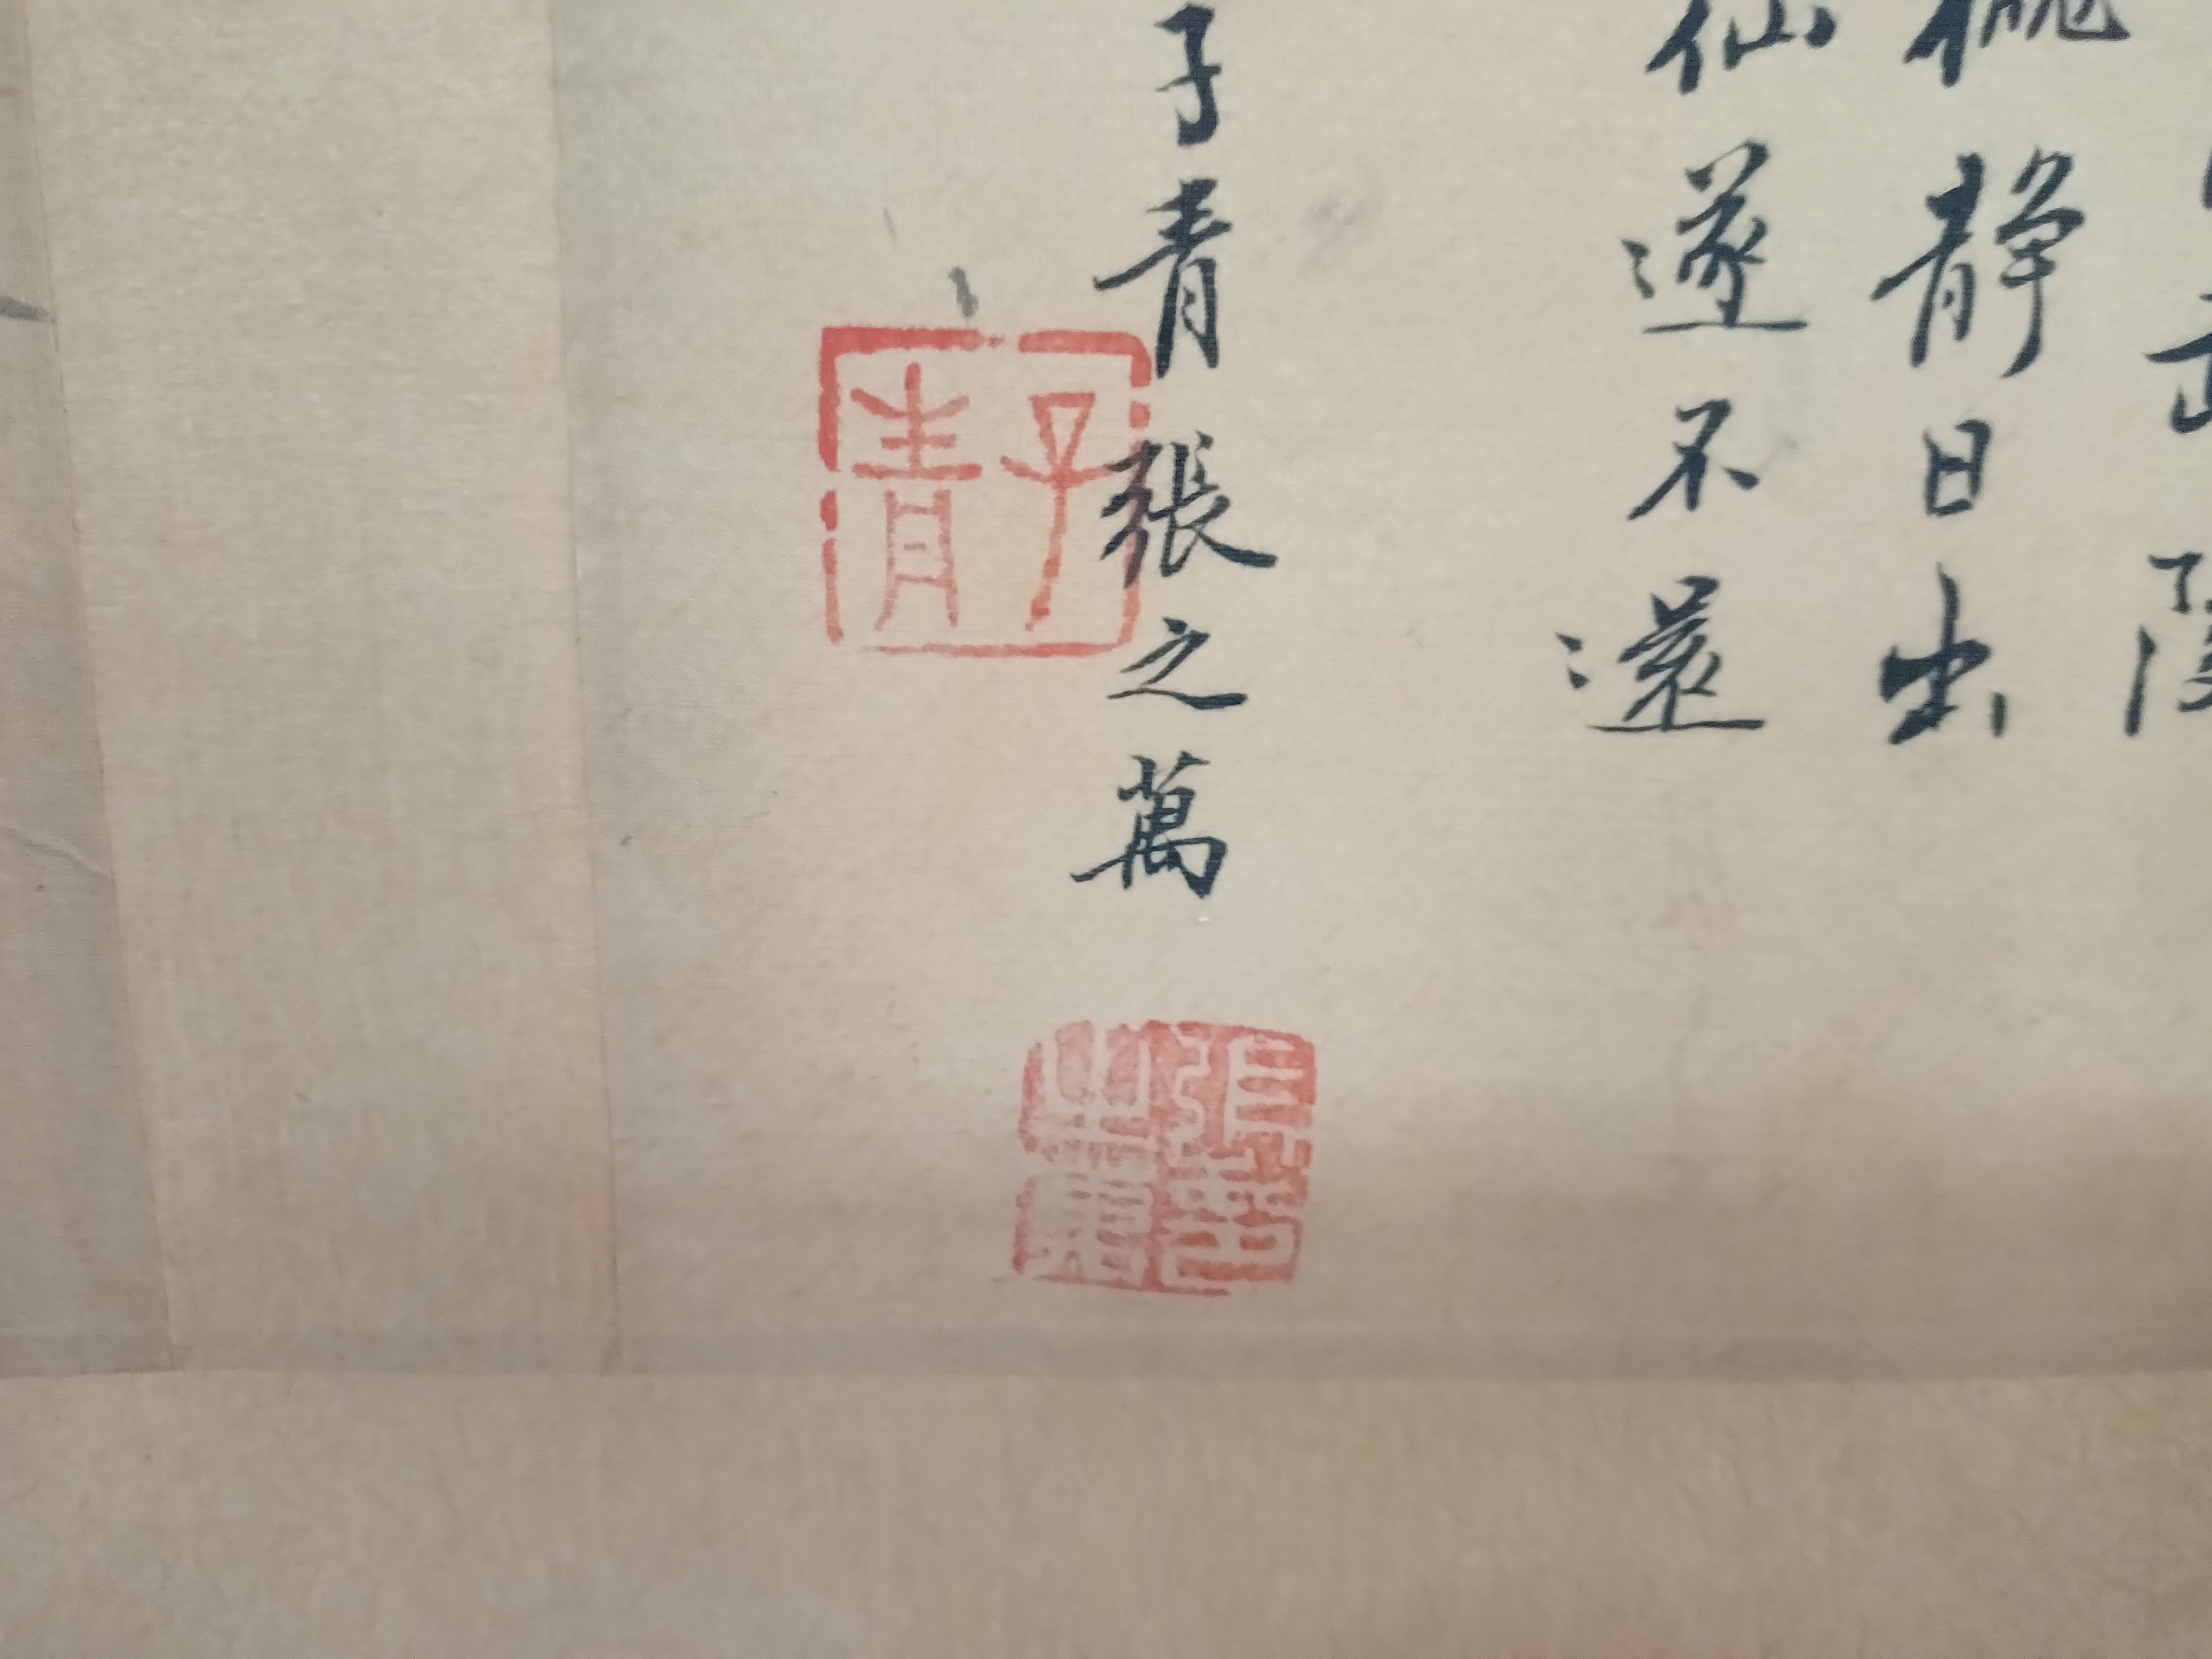 武陵
櫳静日出
仙遂不還
子青張之萬
子青
張之萬印